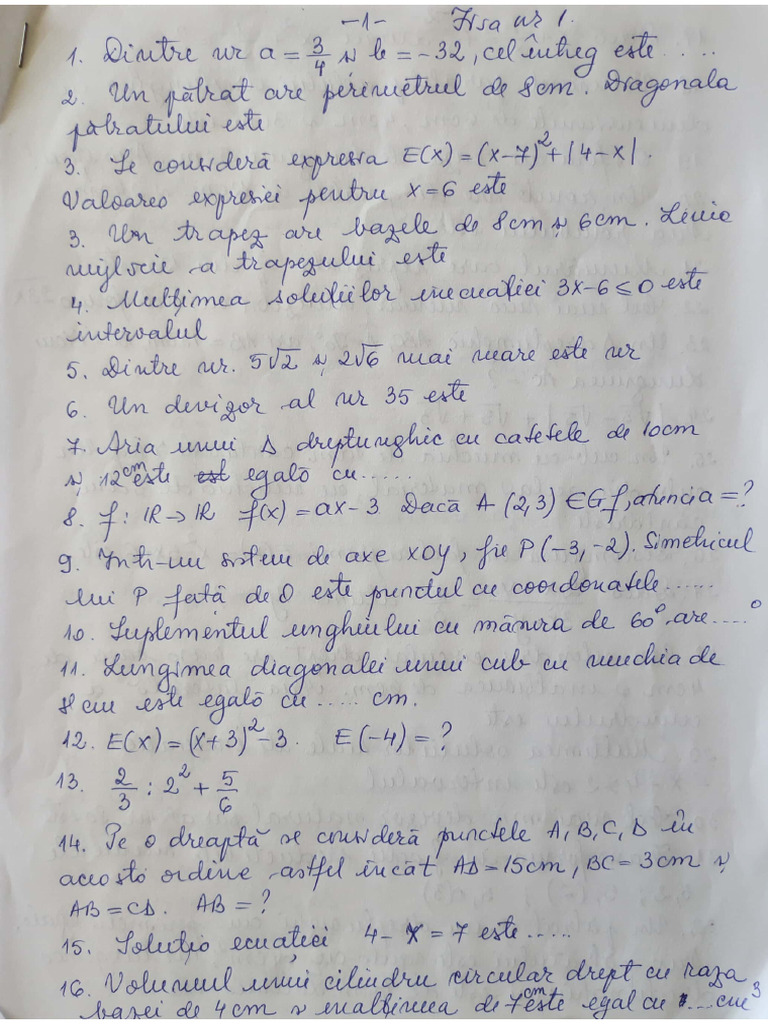 -1- Fisa nr 1.
1. Dintre nr a = 3/4 și b = -32, cel întreg este .....
2. Un pătrat are perimetrul de 8cm. Diagonala
pătratului este
3. Se consideră expresia E(x) = (x-7)² + |4-x|.
Valoarea expresiei pentru x = 6 este
3. Un trapez are bazele de 8cm și 6cm. Linia
mijlocie a trapezului este
4. Mulțimea soluțiilor inecuației 3x-6 ≤ 0 este
intervalul
5. Dintre nr. 5√2 și 2√6 mai mare este nr
6. Un devizor al nr 35 este
7. Aria unui Δ dreptunghic cu catetele de 10cm
și 12cm este egală cu ......
8. f: IR → IR f(x) = ax-3 Dacă A (2,3) ∈ Gf, atunci a = ?
9. Într-un sistem de axe xOy, fie P(-3,-2). Simetricul
lui P față de O este punctul cu coordonatele ......
10. Suplementul unghiului cu măsura de 60°, are ....°
11. Lungimea diagonalei unui cub cu muchia de
8cm este egală cu ..... cm.
12. E(x) = (x+3)² - 3. E(-4) = ?
13. 2/3 : 2² + 5/6
14. Pe o dreaptă se consideră punctele A, B, C, D în
aceasta ordine astfel încât AD = 15cm, BC = 3cm și
AB = CD. AB = ?
15. Soluția ecuației 4 - x = 7 este .....
16. Volumul unui cilindru circular drept cu raza
bazei de 4cm și înălțimea de 7cm este egal cu .... cm³